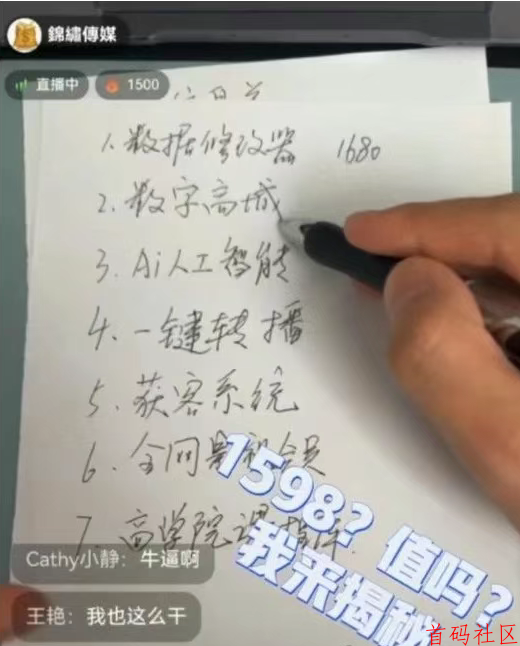 錦繡傳媒
直播中
1500
1. 数据修改器 1680
2. 数字商城
3. Ai人工智能
4. 一键转播
5. 获客系统
6. 全网影视会员
7. 商学院
1598？值吗？
我来揭秘
Cathy小静：牛逼啊
王艳：我也这么干
首码社区